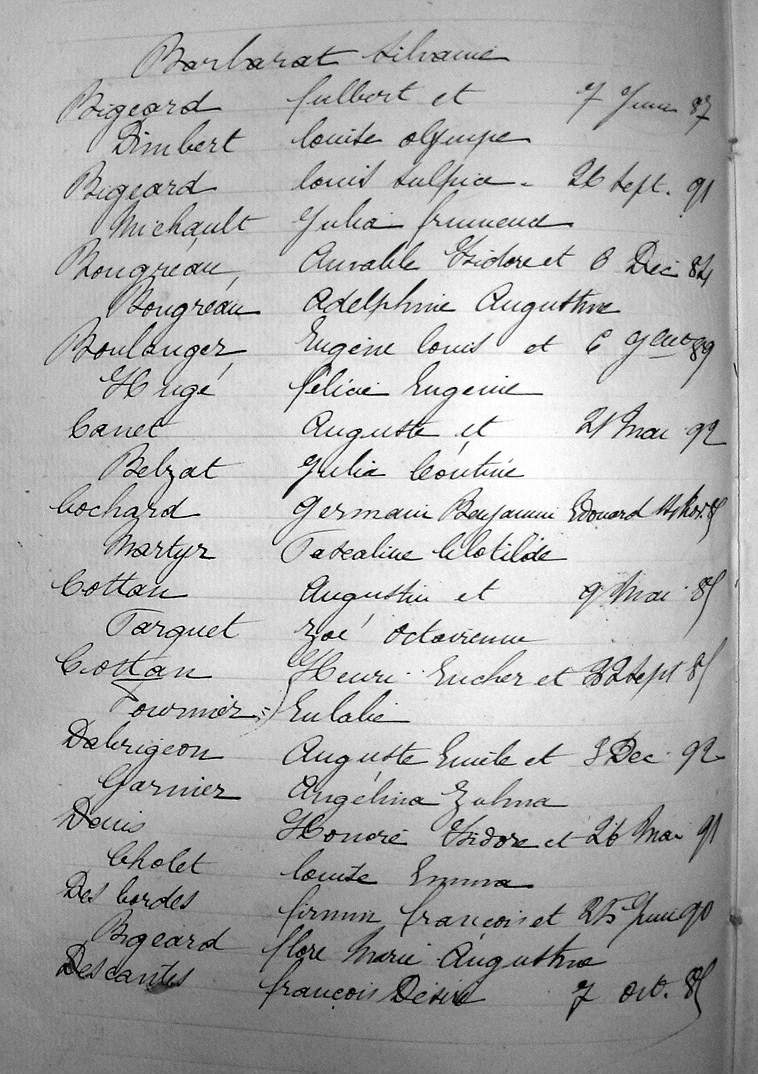 Barbarat Silvanie
Bigeard fulbert et 7 Juin 87
Dimbert louise olympe
Bigeard louis sulpice 26 sept. 91
Michault Julia
Bougréau Aimable Isidore et 8 Dec 84
Bougréau Adelphine Augustine
Boulanger Eugène louis et 6 Juil 89
Hugé félicie Eugenie
Canet Auguste et 21 Mai 92
Belzat Julia Léontine
Cochard Germain Benjamin Edouard 14 Nov. 85
Martyr Pascaline Clotilde
Cottan Augustin et 9 Mai 85
Tarquet Zoé Octavienne
Cottan Henri Eucher et 22 sept 85
Fournier Eulalie
Dabrigeon Auguste Emile et 3 Dec 92
Garnier Angélina Zulma
Denis Honoré Isidore et 26 Mai 91
Cholet louise Emma
Des bordes firmin françois et 25 Juin 90
Bigeard flore Marie Augustine
Descantes françois Désiré 7 Oct. 85